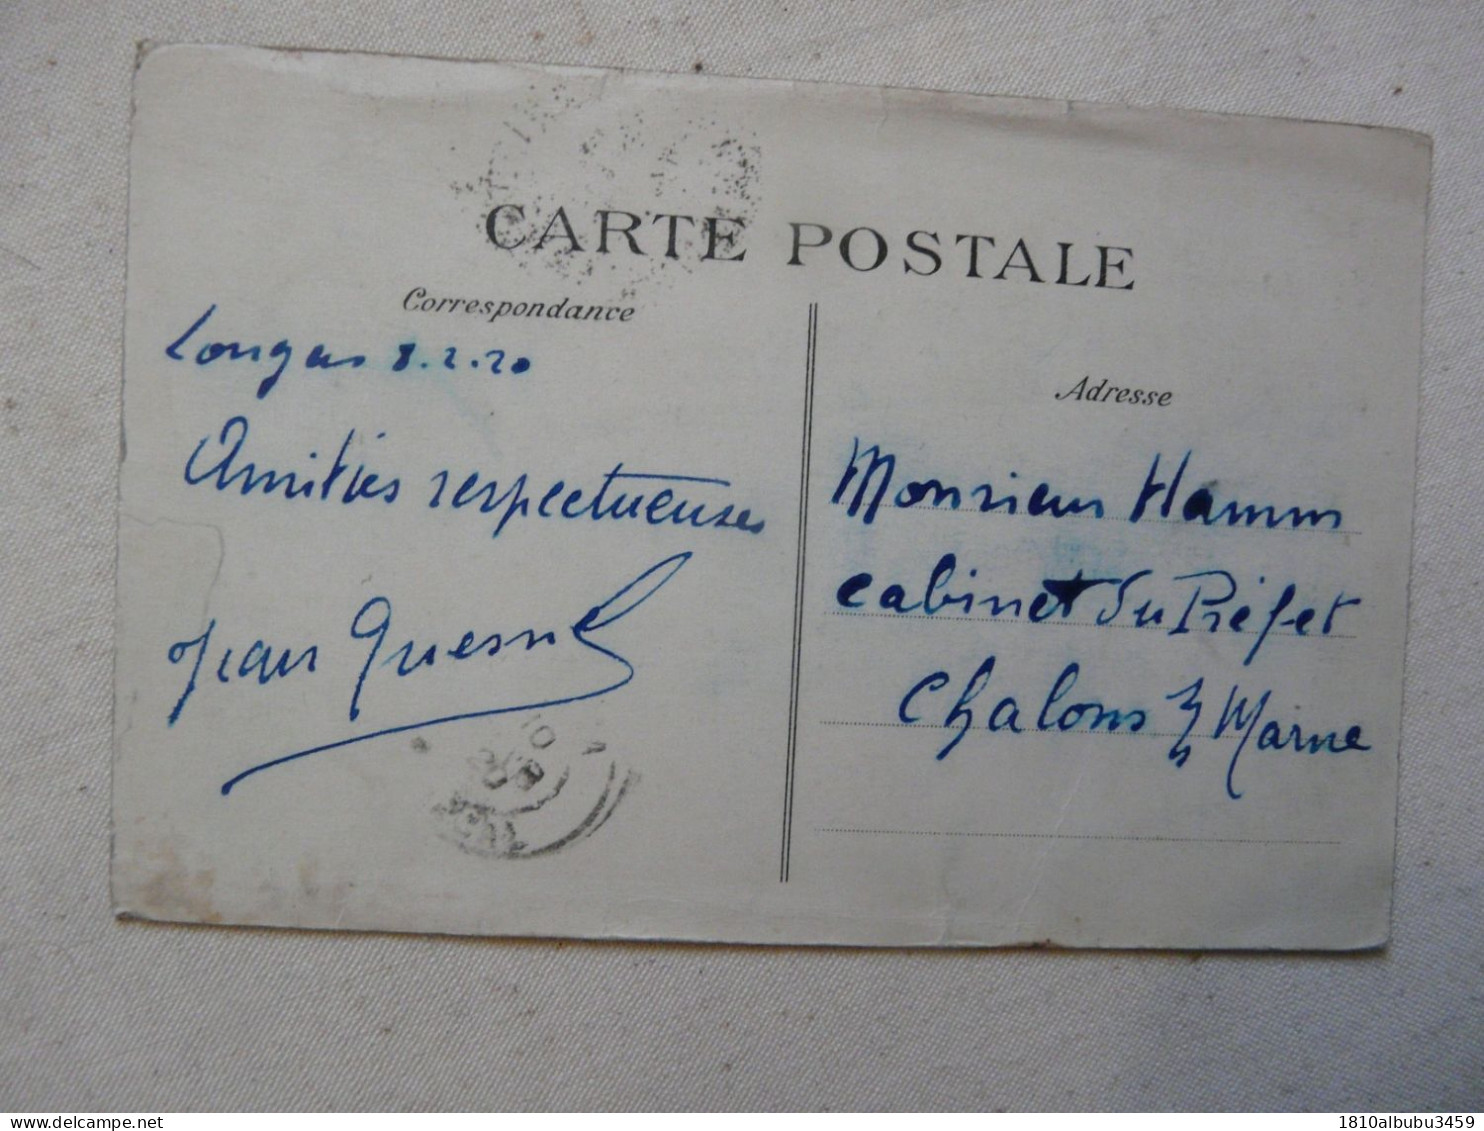 CARTE POSTALE
Correspondance
Longas 8.2.20
Amitiés respectueuses
Jean Quesnel
Adresse
Monsieur Hamm
cabinet du Préfet
Chalons s/ Marne
1810albubu3459